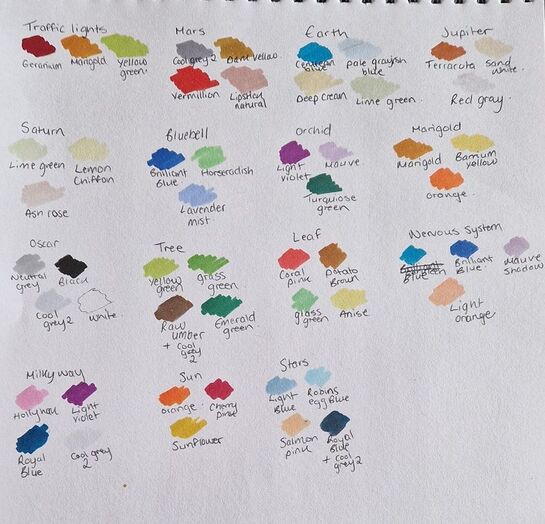 Traffic lights
Geranium
Marigold
Yellow
green.
Mars
Cool grey 2
Dark Yellow
Vermillion
Lipstick
natural
Earth
Cerulean
blue
pale grayish
blue
Deep cream
Lime green.
Jupiter
Terracota
Sand
white.
Red gray.
Saturn
Lime green
Lemon
Chiffon
Ash rose
Bluebell
Brilliant
Blue
Horseradish
Lavender
mist
Orchid
Light
violet
Mauve
Turquoise
green
Marigold
Marigold
Barium
yellow
orange.
Oscar
Neutral
grey
Black
Cool
grey 2
White
Tree
Yellow
green
grass
green
Raw
umber
+ Cool
grey
2
Emerald
green
Leaf
Coral
pink
Potato
Brown
glass
green
Anise
Nervous System
Blue
Brilliant
Blue.
Mauve
Shadow
Light
orange
Milky way
Light
violet
Royal
Blue
Cool grey
2
Sun
orange.
Cherry
pink
Sunflower
Stars
Light
Blue
Robins
egg Blue
Salmon
pink
Royal
Blue
+ Cool
grey 2